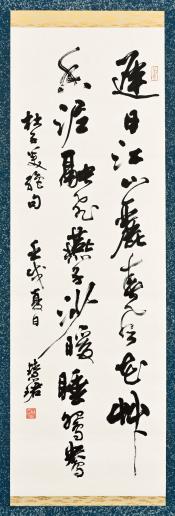 遲日江山麗春風花艸
香泥融飛燕子沙暖睡鴛鴦
杜子美絕句
壬戌夏日